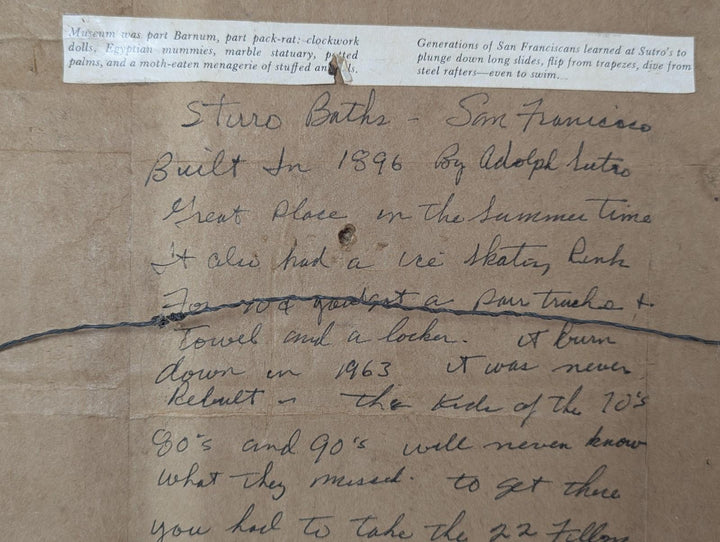 Museum was part Barnum, part pack-rat: clockwork
dolls, Egyptian mummies, marble statuary, potted
palms, and a moth-eaten menagerie of stuffed
Generations of San Franciscans learned at Sutro's to
plunge down long slides, flip from trapezes, dive from
steel rafters—even to swim.
Sturo Baths - San Francisco
Built In 1896 By Adolph Sutro
Great Place in the Summer time
It also had a ice skating Rink
For you got a pair trucks +
Towel and a locker. it burn
down in 1963 it was never
Rebuilt - the Kids of the 70's
80's and 90's will never know
what they missed. to get there
you had to take the 22 Fillmo